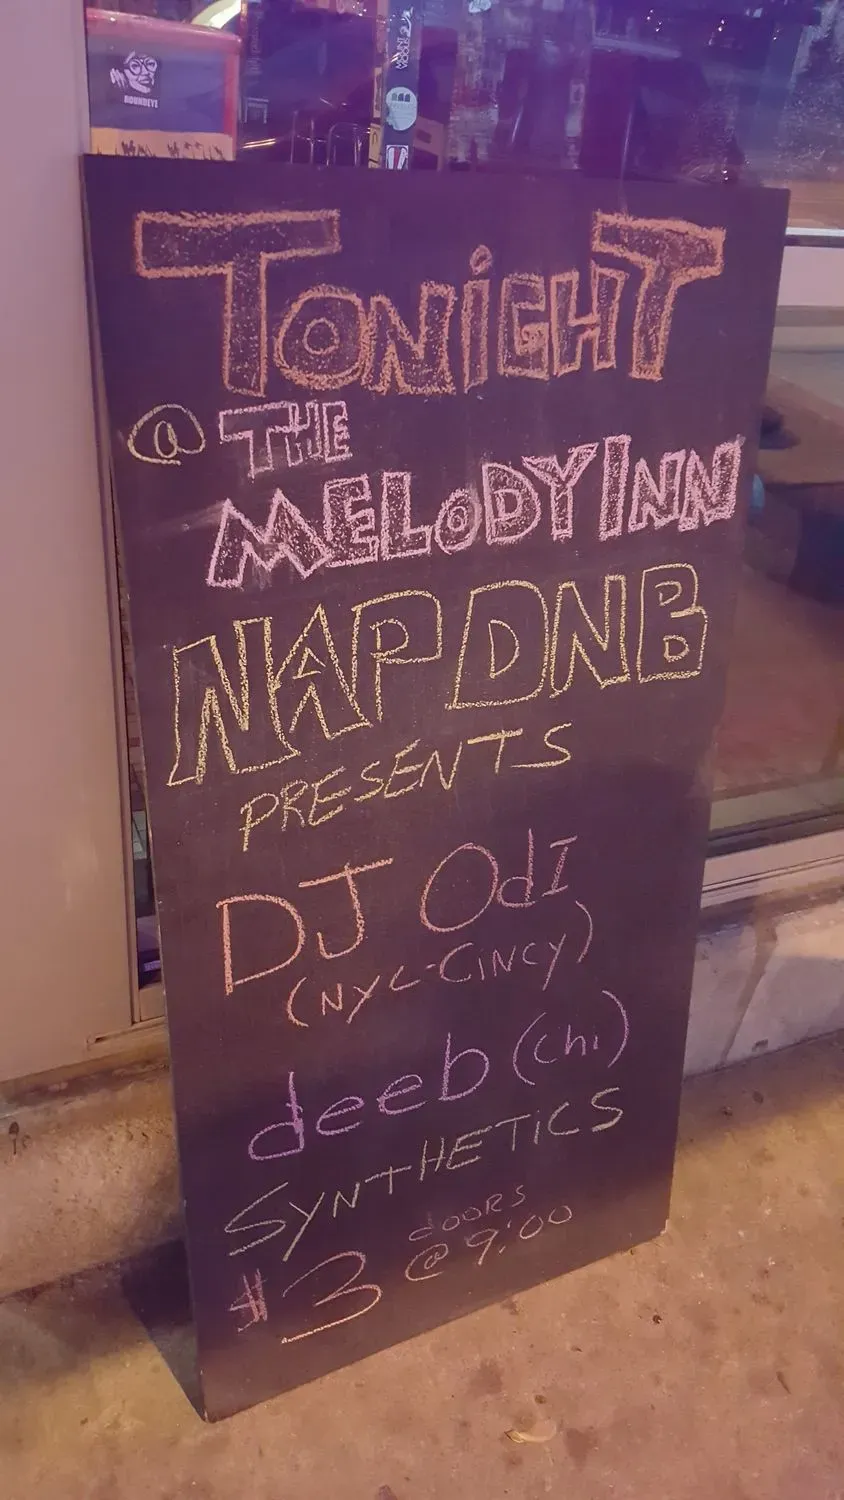 ROUNDEYE
TONiGHT
@ THE
MELODY INN
NAP DNB
PRESENTS
DJ OdI
(NYC-CiNCY)
deeb (chi)
SYNTHETiCS
$3 dOORS @ 9:00